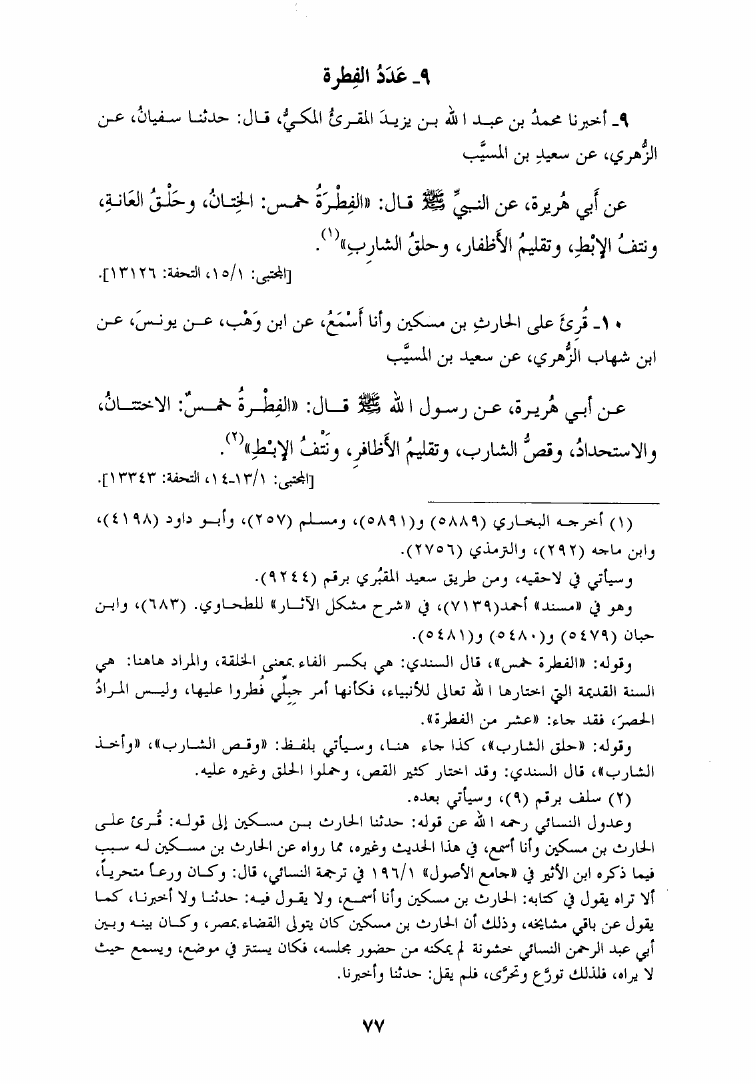 ٩ـ عَدَدُ الفِطرة
٩ـ أخبرنا محمدُ بن عبد الله بن يزيدَ المقرئُ المكيُّ، قال: حدثنا سفيانُ، عن
الزُّهري، عن سعيدِ بن المسيَّب
عن أَبي هُريرة، عن النبيِّ ﷺ قال: «الفِطْرَةُ خمس: الخِتانُ، وحَلْقُ العَانةِ،
ونتفُ الإبْطِ، وتقليمُ الأظفار، وحلقُ الشاربِ»(١).
[المجتبى: ١٥/١، التحفة: ١٣١٢٦].
١٠ـ قُرِئَ على الحارثِ بن مسكين وأنا أَسْمَعُ، عن ابن وَهْب، عن يونسَ، عن
ابن شهاب الزُّهري، عن سعيد بن المسيَّب
عن أبي هُريرة، عن رسول الله ﷺ قال: «الفِطْرةُ خمسٌ: الاختتانُ،
والاستحدادُ، وقصُّ الشارب، وتقليمُ الأظافرِ، ونَتْفُ الإبْطِ»(٢).
[المجتبى: ١٣/١-١٤، التحفة: ١٣٣٤٣].
(١) أخرجه البخاري (٥٨٨٩) و(٥٨٩١)، ومسلم (٢٥٧)، وأبو داود (٤١٩٨)،
وابن ماجه (٢٩٢)، والترمذي (٢٧٥٦).
وسيأتي في لاحقيه، ومن طريق سعيد المقبُري برقم (٩٢٤٤).
وهو في «مسند» أحمد(٧١٣٩)، في «شرح مشكل الآثار» للطحاوي. (٦٨٣)، وابن
حبان (٥٤٧٩) و(٥٤٨٠) و(٥٤٨١).
وقوله: «الفطرة خمس»، قال السندي: هي بكسر الفاء بمعنى الخلقة، والمراد هاهنا: هي
السنة القديمة التي اختارها الله تعالى للأنبياء، فكأنها أمر جِبِلِّي فُطروا عليها، وليس المرادُ
الحصرَ، فقد جاء: «عشر من الفطرة».
وقوله: «حلق الشارب»، كذا جاء هنا، وسيأتي بلفظ: «وقص الشارب»، «وأخذ
الشارب»، قال السندي: وقد اختار كثير القص، وحملوا الحلق وغيره عليه.
(٢) سلف برقم (٩)، وسيأتي بعده.
وعدول النسائي رحمه الله عن قوله: حدثنا الحارث بن مسكين إلى قوله: قُرئ على
الحارث بن مسكين وأنا أسمع، في هذا الحديث وغيره، مما رواه عن الحارث بن مسكين له سبب
فيما ذكره ابن الأثير في «جامع الأصول» ١٩٦/١ في ترجمة النسائي، قال: وكان ورعاً متحرياً،
ألا تراه يقول في كتابه: الحارث بن مسكين وأنا أسمع، ولا يقول فيه: حدثنا ولا أخبرنا، كما
يقول عن باقي مشايخه، وذلك أن الحارث بن مسكين كان يتولى القضاء بمصر، وكان بينه وبين
أبي عبد الرحمن النسائي خشونة لم يمكنه من حضور مجلسه، فكان يستتر في موضع، ويسمع حيث
لا يراه، فلذلك تورَّع وتحرَّى، فلم يقل: حدثنا وأخبرنا.
٧٧